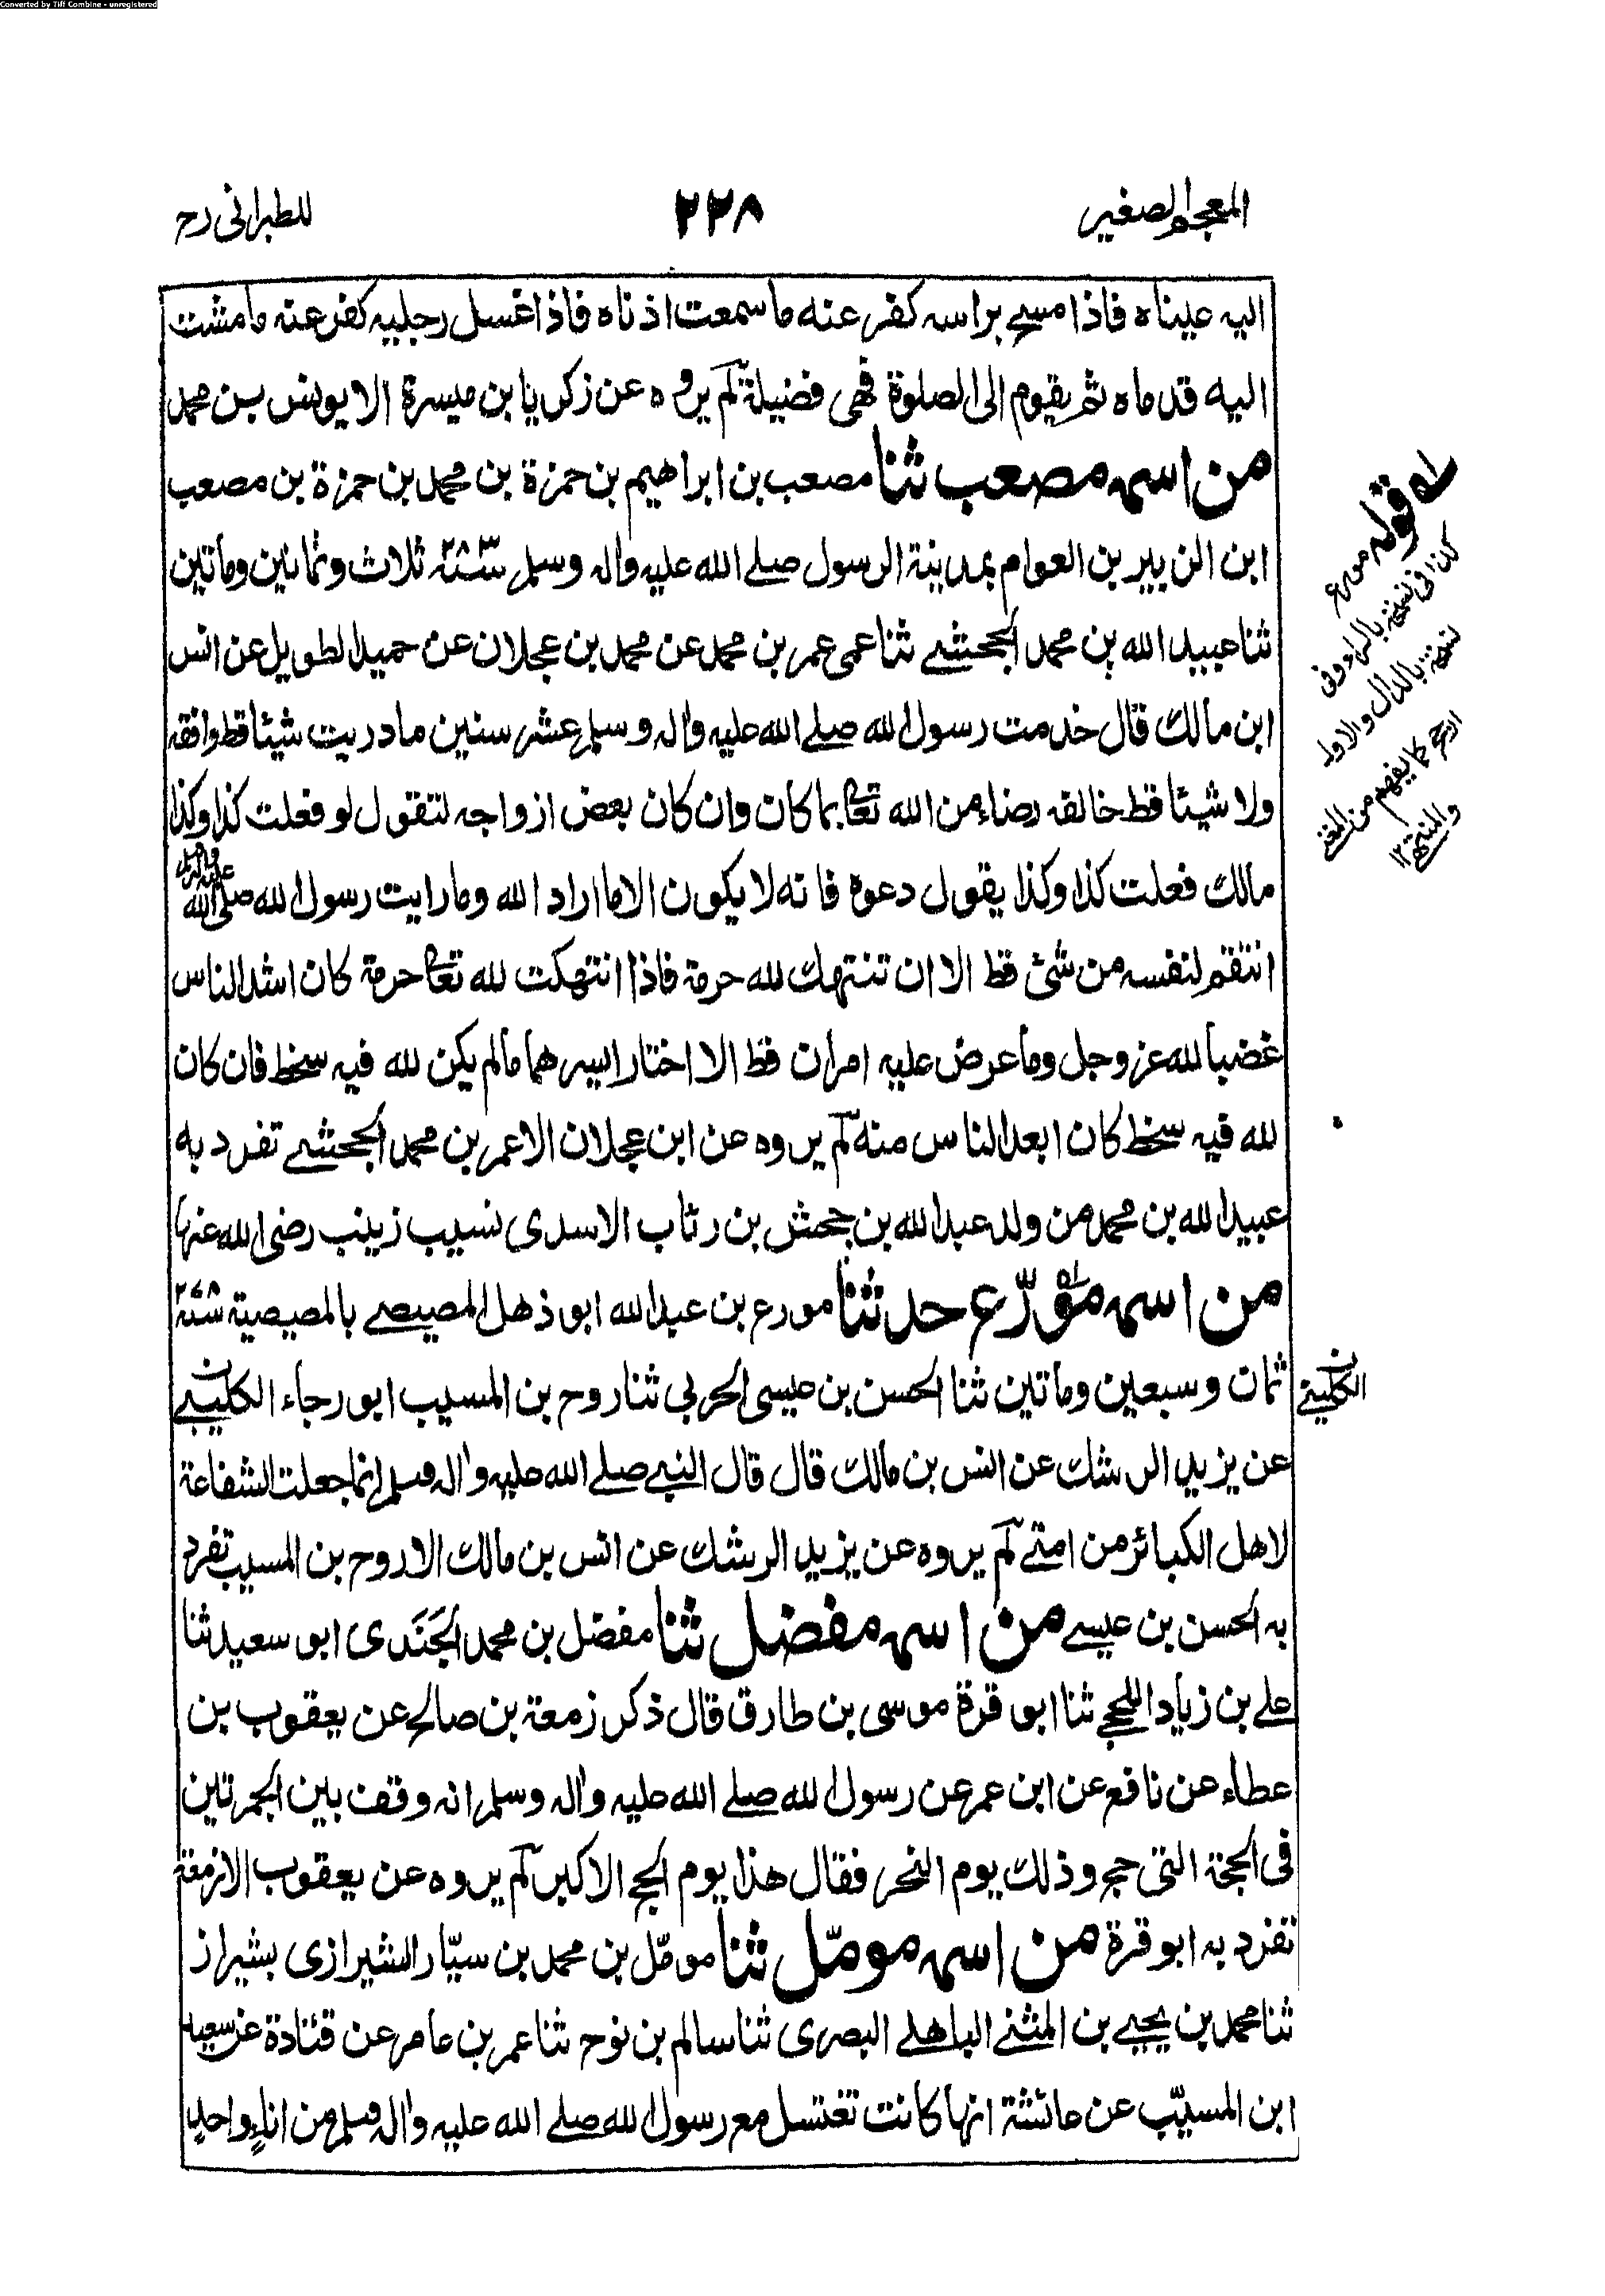 Converted by Tiff Combine - unregistered
المعجم الصغير ٢٢٨ للطبرانى رح
اليه عيناه فاذا مسح براسه كفر عنه ما سمعت اذناه فاذا غسل رجليه كفر عنه ما مشت
اليه قدماه ثم يقوم الى الصلوة فهى فضيلة لم يروه عن زكريا بن ميسرة الا يونس بن محمد
من اسمه مصعب ثنا مصعب بن ابراهيم بن حمزة بن محمد بن حمزة بن مصعب
ابن الزبير بن العوام بمدينة الرسول صلے الله عليه واله وسلم سنة ٢٨٣ ثلاث وثمانين ومأتين
ثنا عبيد الله بن محمد الجحشے ثنا عمى عمر بن محمد عن محمد بن عجلان عن حميد الطويل عن انس
ابن مالك قال خدمت رسول الله صلے الله عليه واله وسلم عشر سنين ما دريت شيئا قط وافقه
ولا شيئا قط خالفه رضاء من الله تعالى بما كان وان كان بعض ازواجه لتقول لو فعلت كذا وكذا
مالك فعلت كذا وكذا يقول دعوه فانه لا يكون الا ما اراد الله وما رايت رسول الله صلى الله عليه واله وسلم
انتقم لنفسه من شئ قط الا ان تنتهك لله حرمة فاذا انتهكت لله تعالى حرمة كان اشد الناس
غضبا لله عز وجل وما عرض عليه امران قط الا اختار ايسرهما ما لم يكن لله فيه سخط فان كان
لله فيه سخط كان ابعد الناس منه لم يروه عن ابن عجلان الا عمر بن محمد الجحشے تفرد به
عبيد الله بن محمد من ولد عبد الله بن جحش بن رئاب الاسدى نسيب زينب رضى الله عنها
من اسمه مورّع حدثنا مورع بن عبد الله ابو ذهل المصيصے بالمصيصية سنة ٢٧٨
ثمان وسبعين ومأتين ثنا الحسن بن عيسى الحربى ثنا روح بن المسيب ابو رجاء الكليبے
عن يزيد الرشك عن انس بن مالك قال قال النبے صلے الله عليه واله وسلم انما جعلت الشفاعة
لاهل الكبائر من امتے لم يروه عن يزيد الرشك عن انس بن مالك الا روح بن المسيب تفرد
به الحسن بن عيسے من اسمه مفضل ثنا مفضل بن محمد الجَنَدى ابو سعيد ثنا
علے بن زياد اللحجے ثنا ابو قرة موسى بن طارق قال ذكر زمعة بن صالح عن يعقوب بن
عطاء عن نافع عن ابن عمر عن رسول الله صلے الله عليه واله وسلم انه وقف بين الجمرتين
فى الحجة التى حج وذلك يوم النحر فقال هذا يوم الحج الاكبر لم يروه عن يعقوب الا زمعة
تفرد به ابو قرة من اسمه مومّل ثنا مومّل بن محمد بن سيّار الشيرازى بشيراز
ثنا محمد بن يحيے بن المثنے الباهلے البصرى ثنا سالم بن نوح ثنا عمر بن عامر عن قتادة عن سعيد
ابن المسيّب عن عائشة انها كانت تغتسل مع رسول الله صلے الله عليه واله وسلم من اناءٍ واحدٍ
له قوله مورع
كذا فى نسخة بالراء وفى
نسخة بالدال والاول
ارجح كما يفهم من المغنے
والمنتهے ١٢